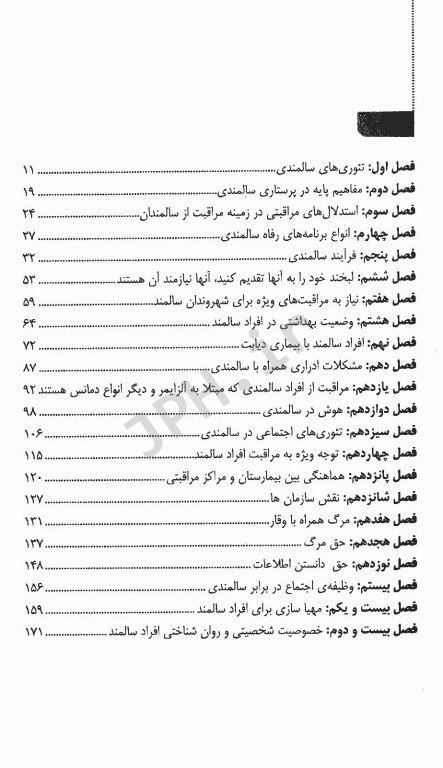 فصل اول: تئوری‌های سالمندی ۱۱
فصل دوم: مفاهیم پایه در پرستاری سالمندی ۱۹
فصل سوم: استدلال‌های مراقبتی در زمینه مراقبت از سالمندان ۲۴
فصل چهارم: انواع برنامه‌های رفاه سالمندی ۲۷
فصل پنجم: فرآیند سالمندی ۳۲
فصل ششم: لبخند خود را به آنها تقدیم کنید، آنها نیازمند آن هستند ۵۳
فصل هفتم: نیاز به مراقبت‌های ویژه برای شهروندان سالمند ۵۹
فصل هشتم: وضعیت بهداشتی در افراد سالمند ۶۴
فصل نهم: افراد سالمند با بیماری دیابت ۷۲
فصل دهم: مشکلات ادراری همراه با سالمندی ۸۷
فصل یازدهم: مراقبت از افراد سالمندی که مبتلا به آلزایمر و دیگر انواع دمانس هستند ۹۲
فصل دوازدهم: هوش در سالمندی ۹۸
فصل سیزدهم: تئوری‌های اجتماعی در سالمندی ۱۰۶
فصل چهاردهم: توجه ویژه به مراقبت افراد سالمند ۱۱۵
فصل پانزدهم: هماهنگی بین بیمارستان و مراکز مراقبتی ۱۲۰
فصل شانزدهم: نقش سازمان ها ۱۲۷
فصل هفدهم: مرگ همراه با وقار ۱۳۱
فصل هجدهم: حق مرگ ۱۳۷
فصل نوزدهم: حق دانستن اطلاعات ۱۴۸
فصل بیستم: وظیفه‌ی اجتماع در برابر سالمندی ۱۵۶
فصل بیست و یکم: مهیا سازی برای افراد سالمند ۱۵۹
فصل بیست و دوم: خصوصیت شخصیتی و روان شناختی افراد سالمند ۱۷۱
JPH.ir